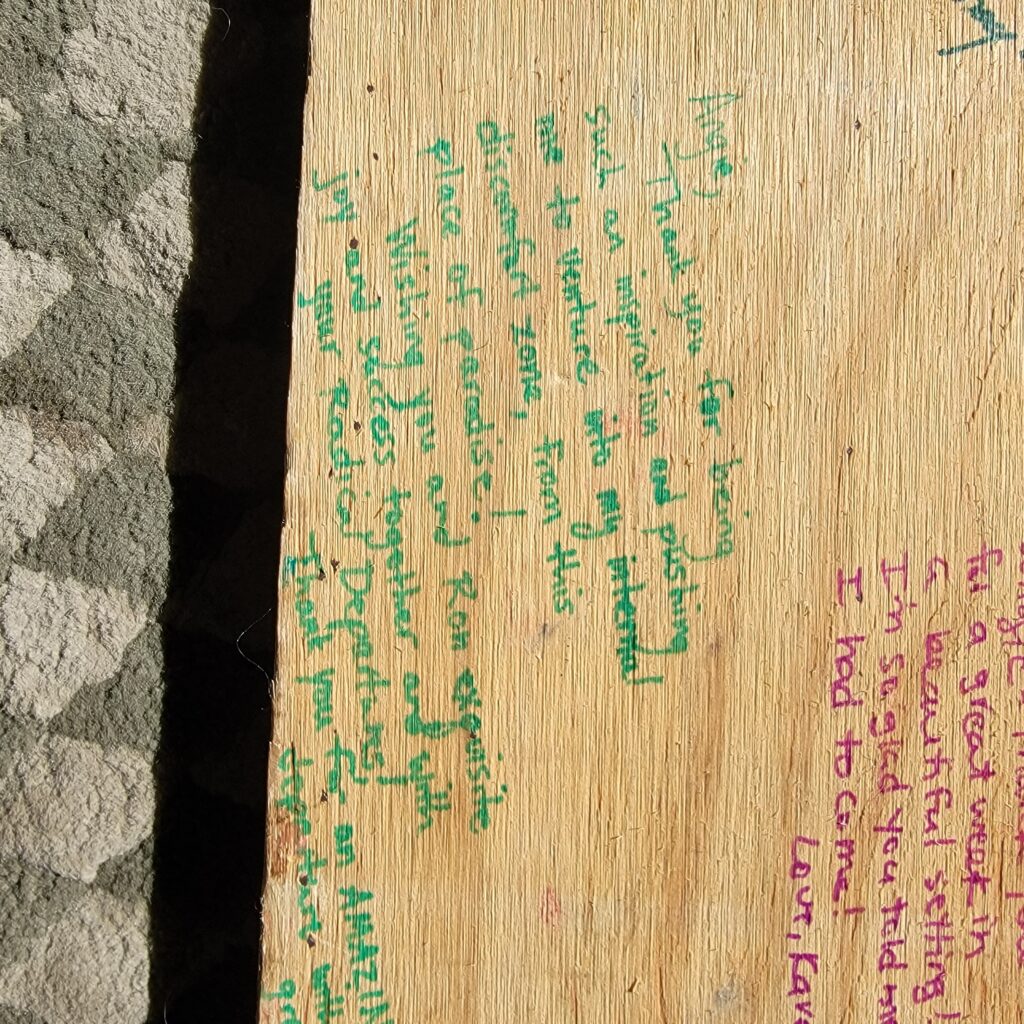 Angie,
Thank you for being
such an inspiration and pushing
me to venture into my internal
discomfort zone, from this
place of paradise!
Wishing you and Ron exquisite
joy and success together and with
your Radical Departures!
Thank you for an AMAZIN
for a great week in
a beautiful setting!
I'm so glad you told m
I had to come!
Love,